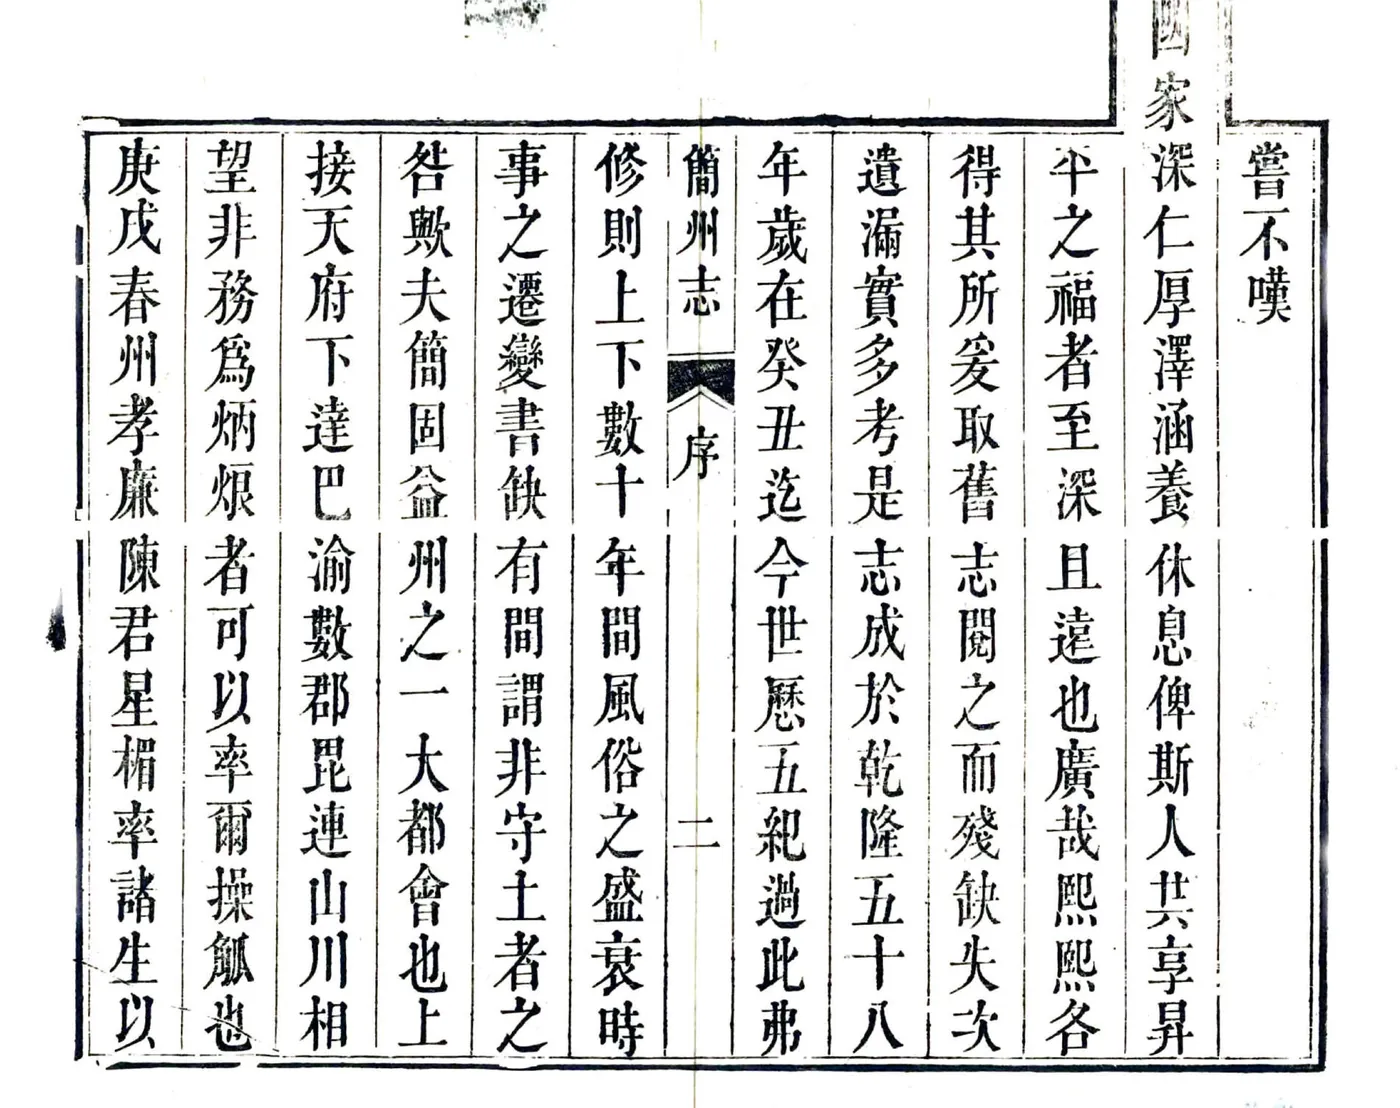 嘗不嘆
國家深仁厚澤涵養休息俾斯人共享昇
平之福者至深且遠也廣哉熙熙各
得其所爰取舊志閱之而殘缺失次
遺漏實多考是志成於乾隆五十八
年歲在癸丑迄今世歷五紀過此弗
簡州志 序 二
修則上下數十年間風俗之盛衰時
事之遷變書缺有間謂非守土者之
咎歟夫簡固益州之一大都會也上
接天府下達巴渝數郡毘連山川相
望非務爲炳烺者可以率爾操觚也
庚戌春州孝廉陳君星楣率諸生以